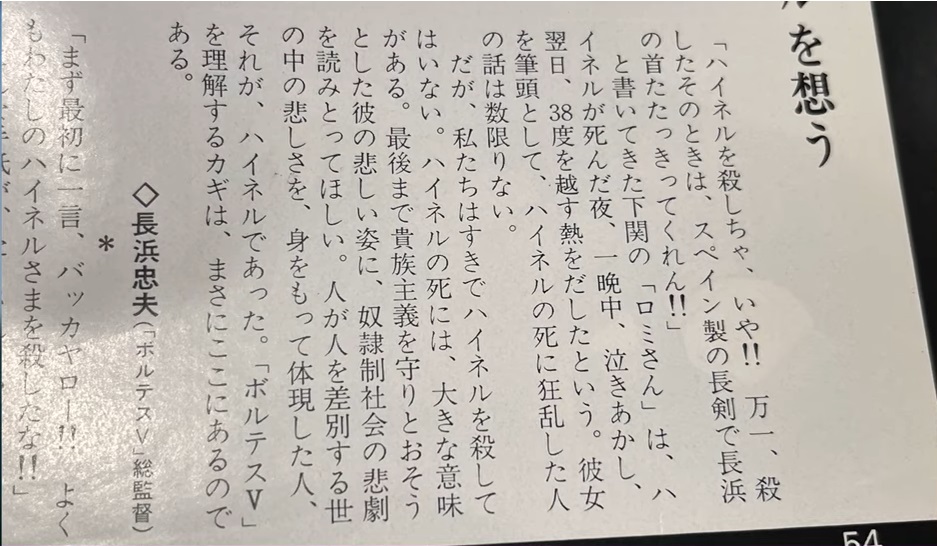 ルを想う
「ハイネルを殺しちゃ、いや!! 万一、殺
したそのときは、スペイン製の長剣で長浜
の首たたっきってくれん!!」
と書いてきた下関の「ロミさん」は、ハ
イネルが死んだ夜、一晩中、泣きあかし、
翌日、38度を越す熱をだしたという。彼女
を筆頭として、ハイネルの死に狂乱した人
の話は数限りない。
だが、私たちはすきでハイネルを殺して
はいない。ハイネルの死には、大きな意味
がある。最後まで貴族主義を守りとおそう
とした彼の悲しい姿に、奴隷制社会の悲劇
を読みとってほしい。人が人を差別する世
の中の悲しさを、身をもって体現した人、
それが、ハイネルであった。「ボルテスV」
を理解するカギは、まさにここにあるので
ある。
◇長浜忠夫(「ボルテスV」総監督)
*
「まず最初に一言、バッカヤロー!! よく
もわたしのハイネルさまを殺したな!!」
54